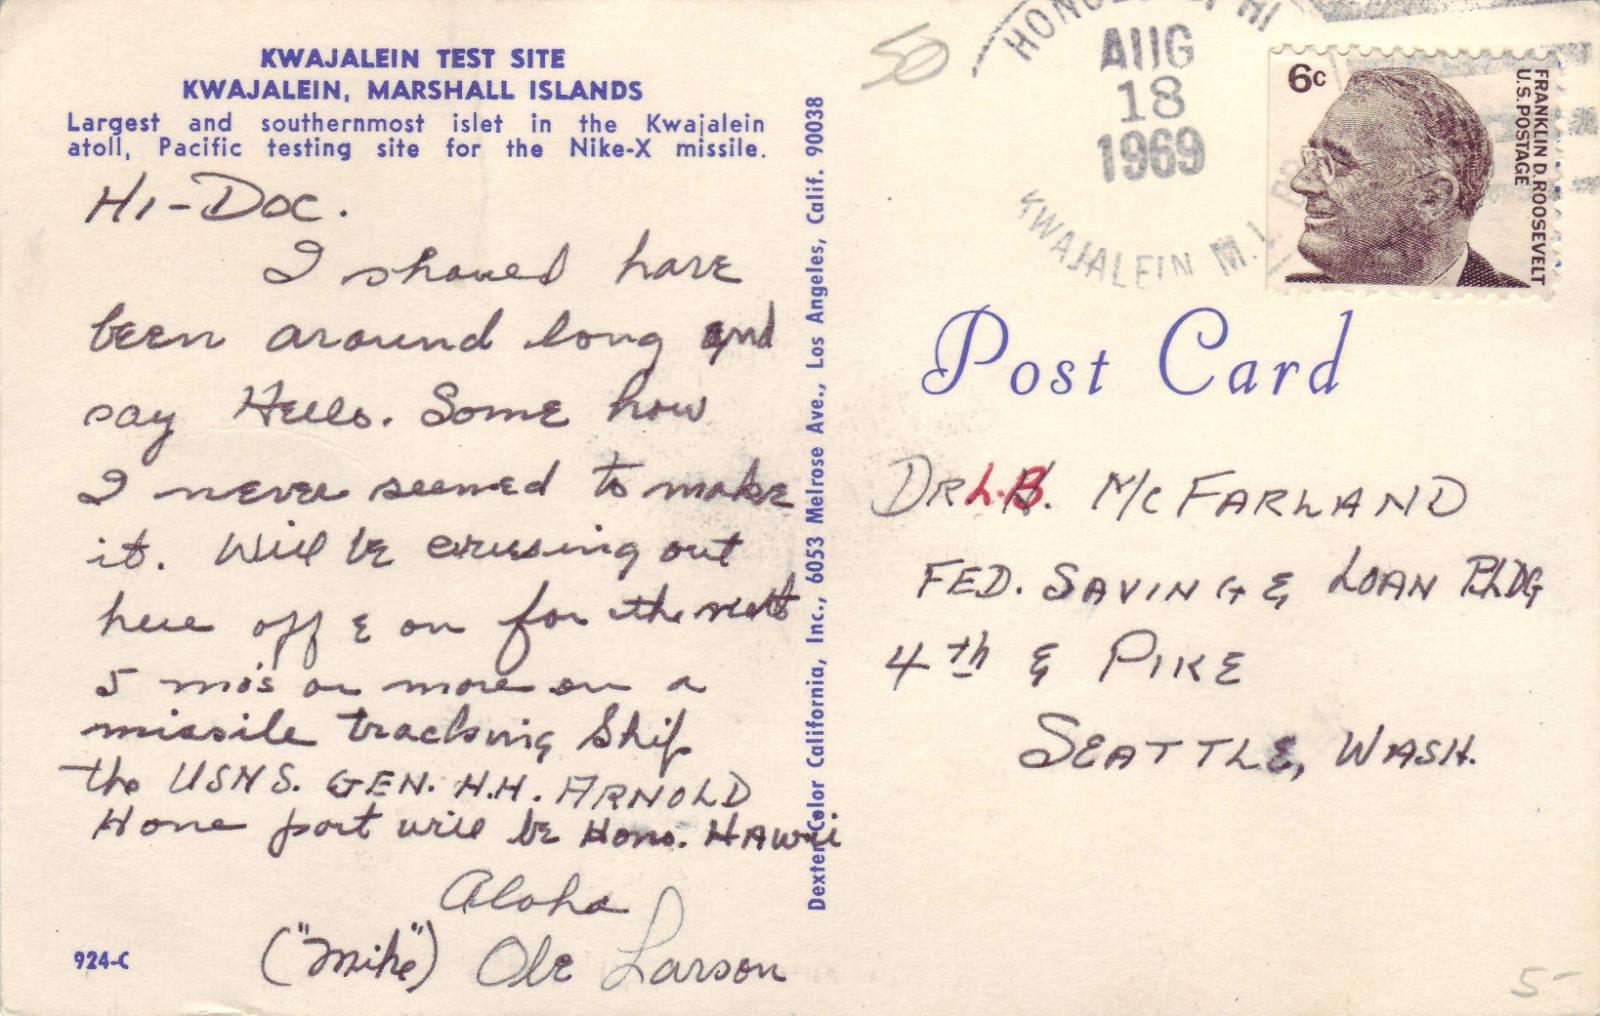 KWAJALEIN TEST SITE
KWAJALEIN, MARSHALL ISLANDS
Largest and southernmost islet in the Kwajalein
atoll, Pacific testing site for the Nike-X missile.
Hi-Doc.
I should have
been around long and
say Hello. Some how
I never seemed to make
it. Will be crusing out
here off & on for the next
5 mos or more on a
missile tracking ship
the USNS. GEN. H.H. ARNOLD
Home port will be Hono. HAWaii
Aloha
("Mike") Ole Larson
924-C
Dexter Color California, Inc., 6053 Melrose Ave., Los Angeles, Calif. 90038
50
HONOLULU HI
AUG
18
1969
KWAJALEIN M.I.
6c
FRANKLIN D. ROOSEVELT
U.S. POSTAGE
Post Card
DR L.B. McFARLAND
FED. SAVING & LOAN BLDG
4th & PIKE
SEATTLE, WASH.
5-